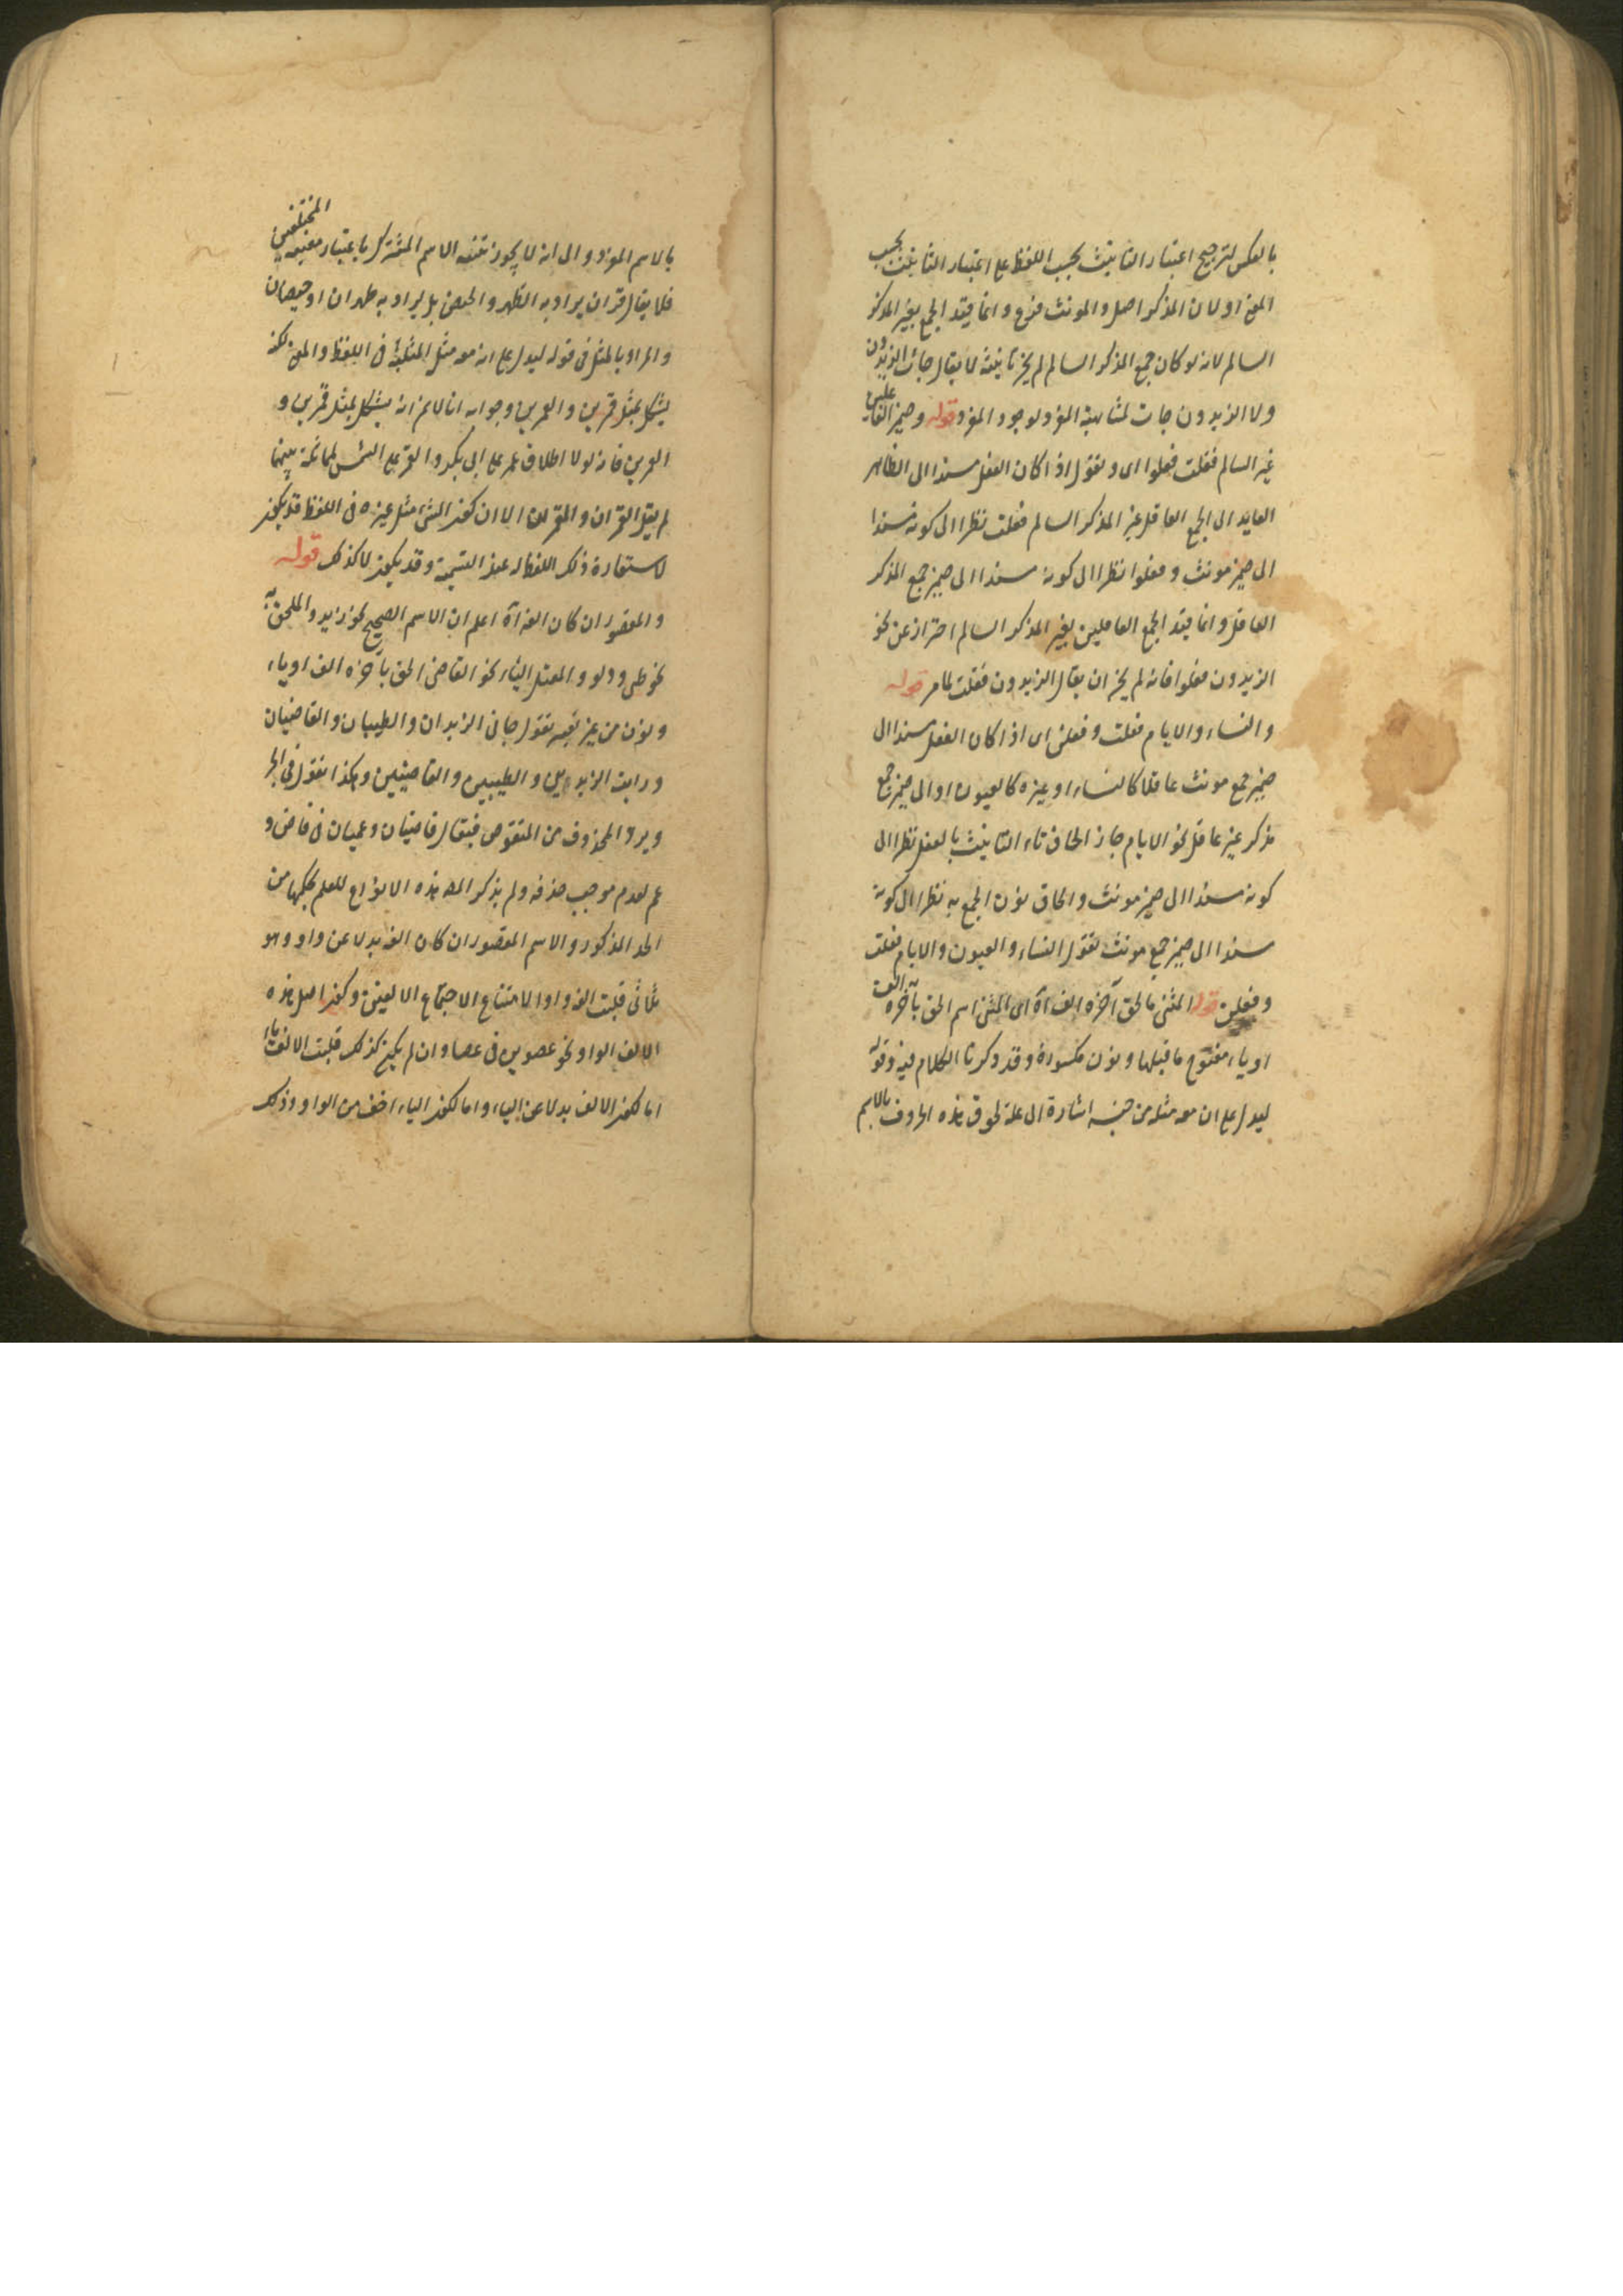 بالعكس لترجيح اعتبار التانيث بحسب اللفظ على اعتبار التانيث بحسب
المعنى او لان المذكر اصل والمونث فرع وانما قيد الجمع بغير المذكر
السالم لانه لو كان جمع المذكر السالم لم يجز تانيثه لا يقال جاءت الزيدون
ولا الزيدون جات لمشابهة المفرد لوجود المفرد قوله وضمير العاقلين
غير السالم فعلت فعلوا اى ونقول اذا كان الفعل مسندا الى الظاهر
العايد الى الجمع العاقل غير المذكر السالم فعلت نظرا الى كونه مسندا
الى ضمير مونث وفعلوا نظرا الى كونه مسندا الى ضمير جمع المذكر
العاقل وانما قيد الجمع العاملين بغير المذكر السالم احتراز عن نحو
الزيدون فعلوا فانه لم يجز ان يقال الزيدون فعلت لما مر قوله
والنساء والايام فعلت وفعلن اى اذا كان الفعل مسندا الى
ضمير جمع مونث عاقلا كالنساء او غيره كالعيون او الى ضمير جمع
مذكر غير عاقل نحو الايام جاز الحاق تاء التانيث بالفعل نظرا الى
كونه مسندا الى ضمير مونث والحاق نون الجمع به نظرا الى كونه
مسندا الى ضمير جمع مونث نقول النساء والعيون والايام فعلت
وفعلن قوله المثنى ما لحق آخره الف آه اى المثنى اسم الحق بآخره الف
او ياء مفتوح ما قبلها ونون مكسورة وقد ذكرنا الكلام فيه وقوله
ليدل على ان معه مثله من جنسه اشارة الى علة لحوق هذه الحروف بالاسم
بالاسم المفرد والى انه لا يجوز تثنيه الاسم المشترك باعتبار معنييه المختلفين
فلا يقال قرآن يراد به الطهر والحيض بل يراد به طهران او حيضان
والمراد بالمثل فى قوله ليدل على ان معه مثل المثلية فى اللفظ والمعنى لكنه
يشكل بمثل قمرين والعمرين وجوابه انا لا نم انه يشكل بمثل قمرين و
العمرين فانه لولا اطلاق عمر على ابى بكر والقمر على الشمس لمماثلة بينهما
لم يقل القمران والعمران الا ان كون الشئ مثل غيره فى اللفظ قد يكون
لاستعارة ذلك اللفظ له عند التسمية وقد يكون لا كذلك قوله
والمقصور ان كان الفه آه اعلم ان الاسم الصحيح نحو زيد والملحق به
نحو ظبى ودلو والمعتل الياء نحو القاضى الحق بآخره الف او ياء
ونون من غير تغيير تقول جانى الزيدان والظبيان والقاضيان
ورايت الزيدين والظبيين والقاضيين وهكذا نقول فى الجر
ويرد المحذوف من المنقوص فيقال قاضيان وعميان فى قاض و
عم لعدم موجب حذفه ولم يذكر المصه هذه الانواع للعلم بحكمها من
الحد المذكور والاسم المقصور ان كان الفه بدلا عن واو وهو
ثلاثى قلبت الفه واوا لامتناع الاجتماع الالفين وكون اصل هذه
الالف الواو نحو عصوين فى عصا وان لم يكن كذلك قلبت الالف ياء
اما لكون الالف بدلا عن الياء واما لكون الياء اخف من الواو وذلك